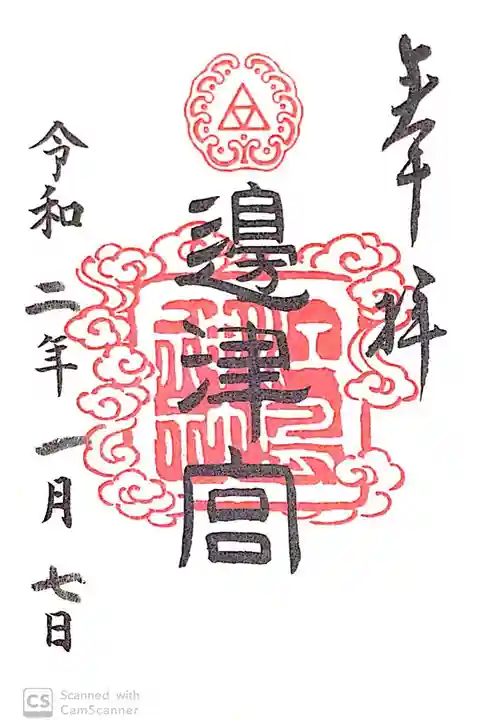 奉拝
邊津宮
令和二年一月七日
CS Scanned with
CamScanner